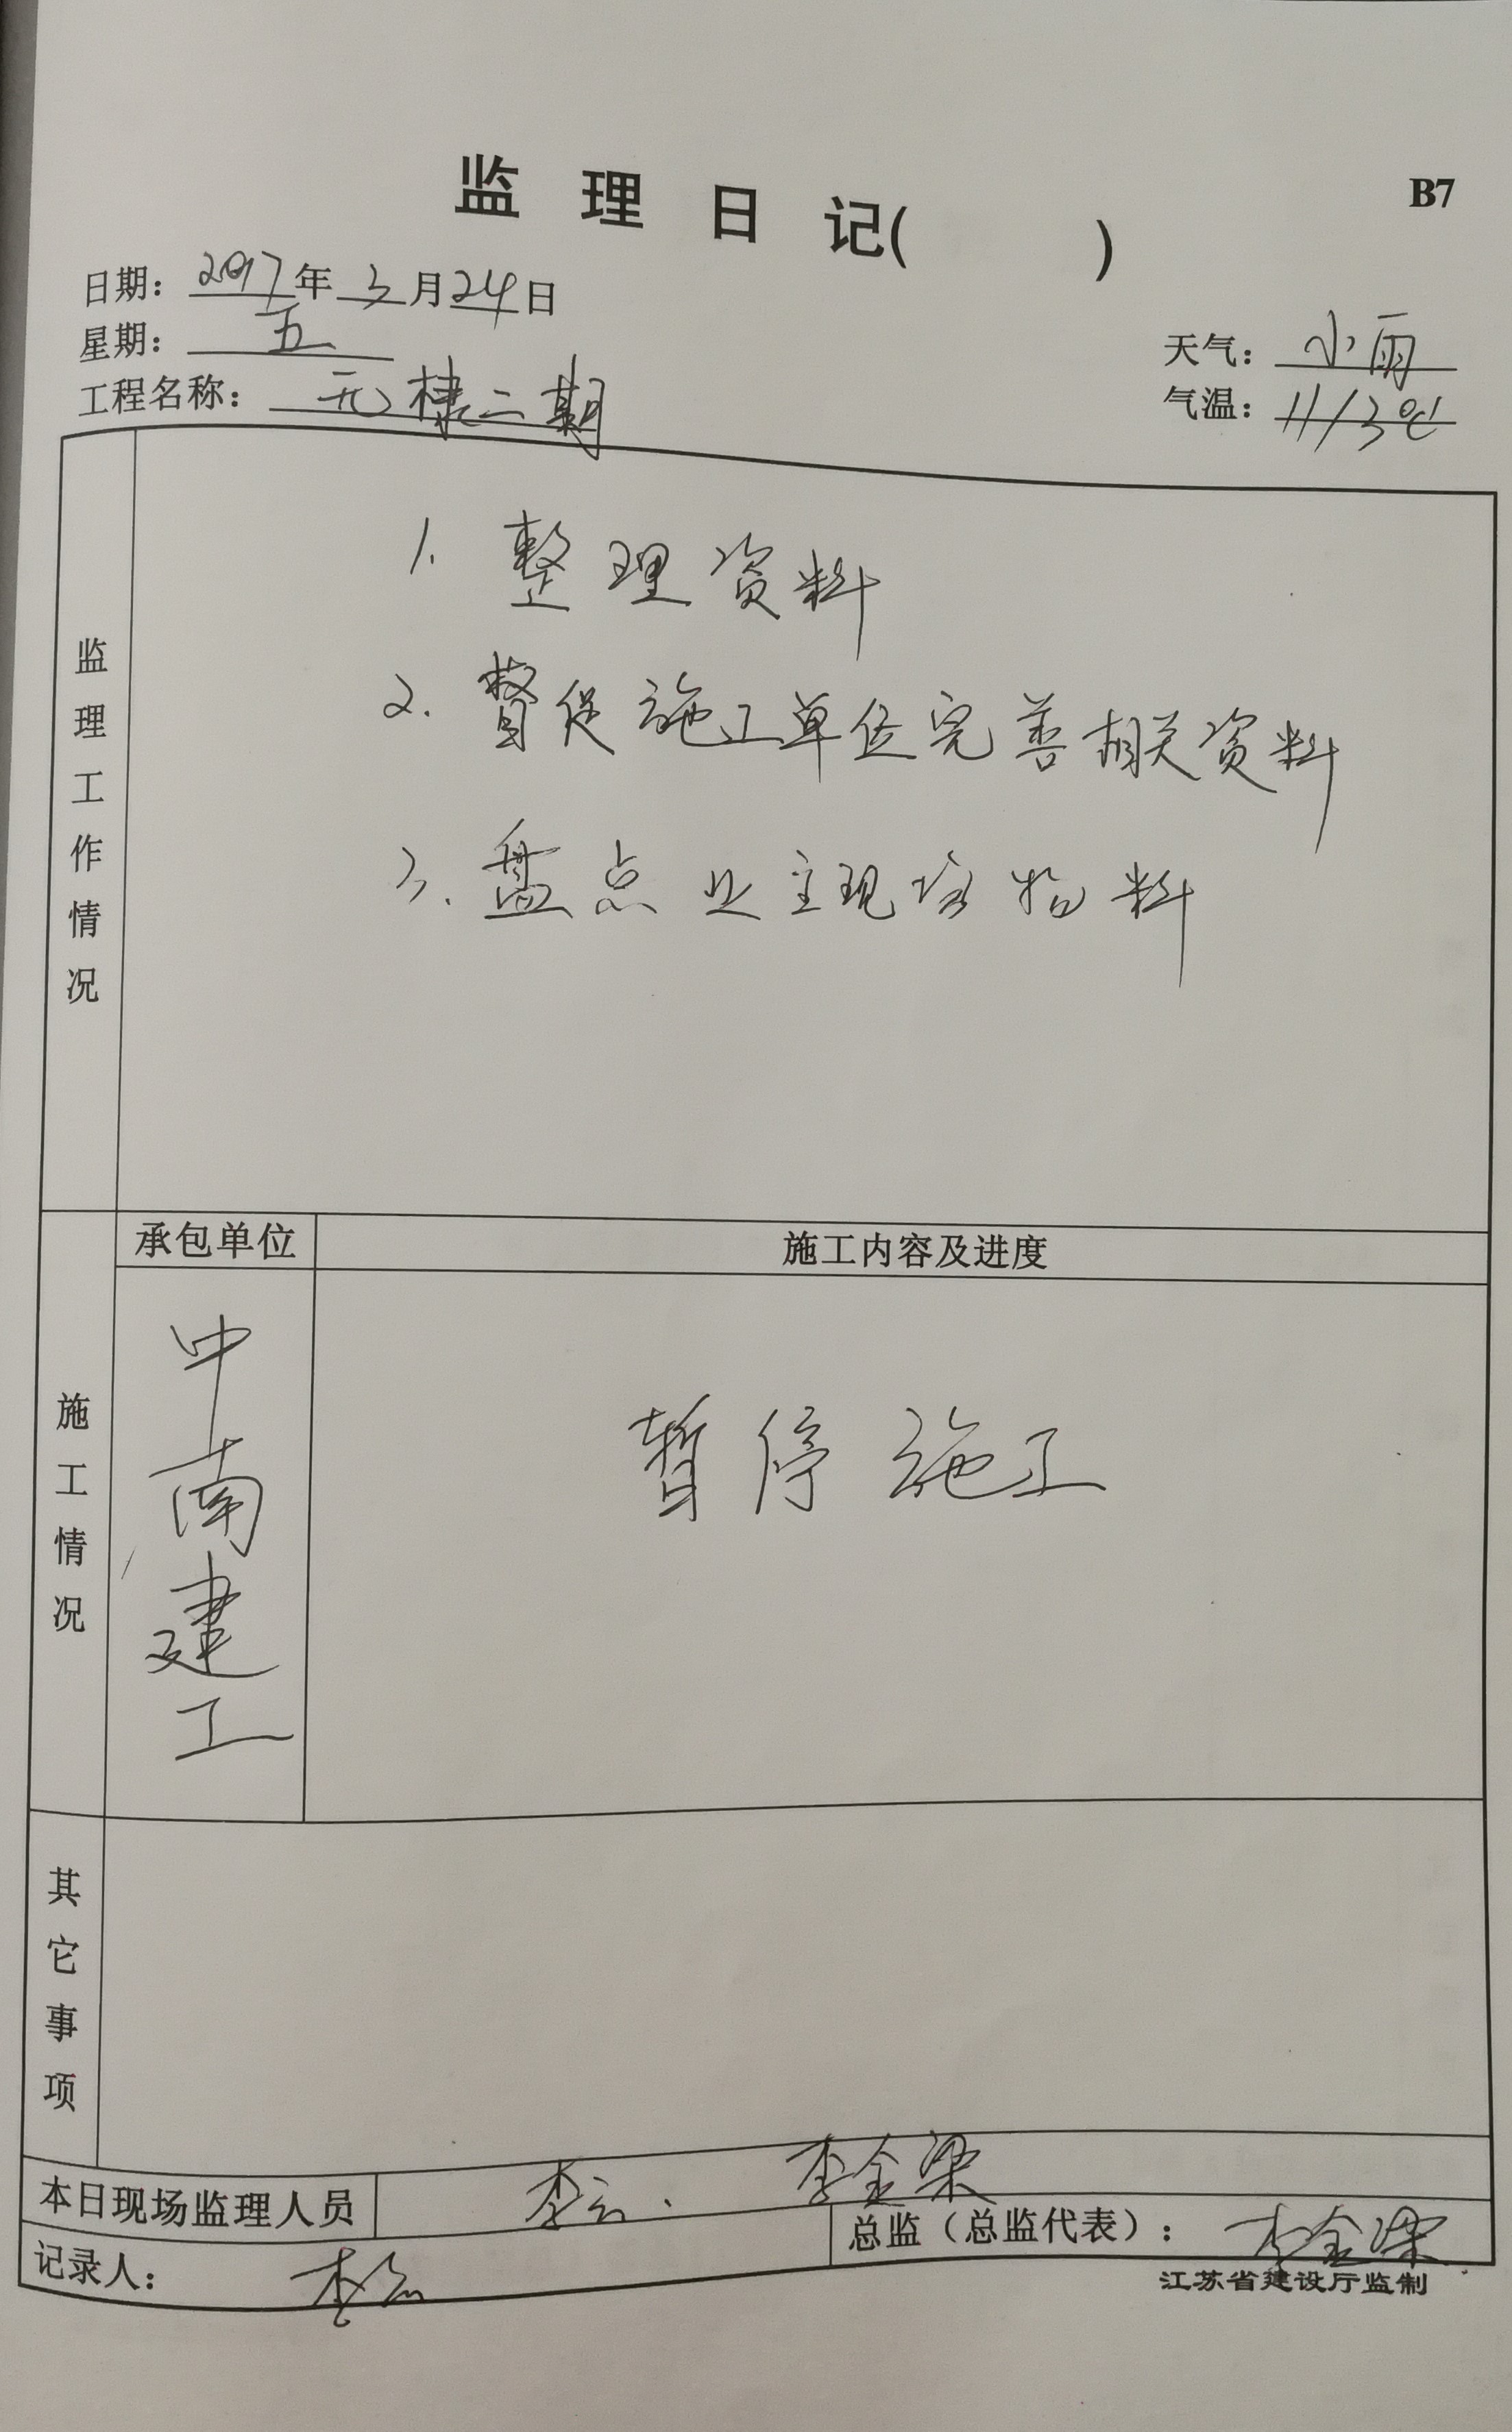 监理日记( )
B7
日期：2017年3月24日
星期：五
天气：小雨
工程名称：无棣二期
气温：11/3℃
监理工作情况
1. 整理资料
2. 督促施工单位完善相关资料
3. 盘点业主现场物料
施工情况
承包单位
施工内容及进度
中南建工
暂停施工
其它事项
本日现场监理人员
李云. 李金梁
记录人：李云
总监（总监代表）：李金梁
江苏省建设厅监制